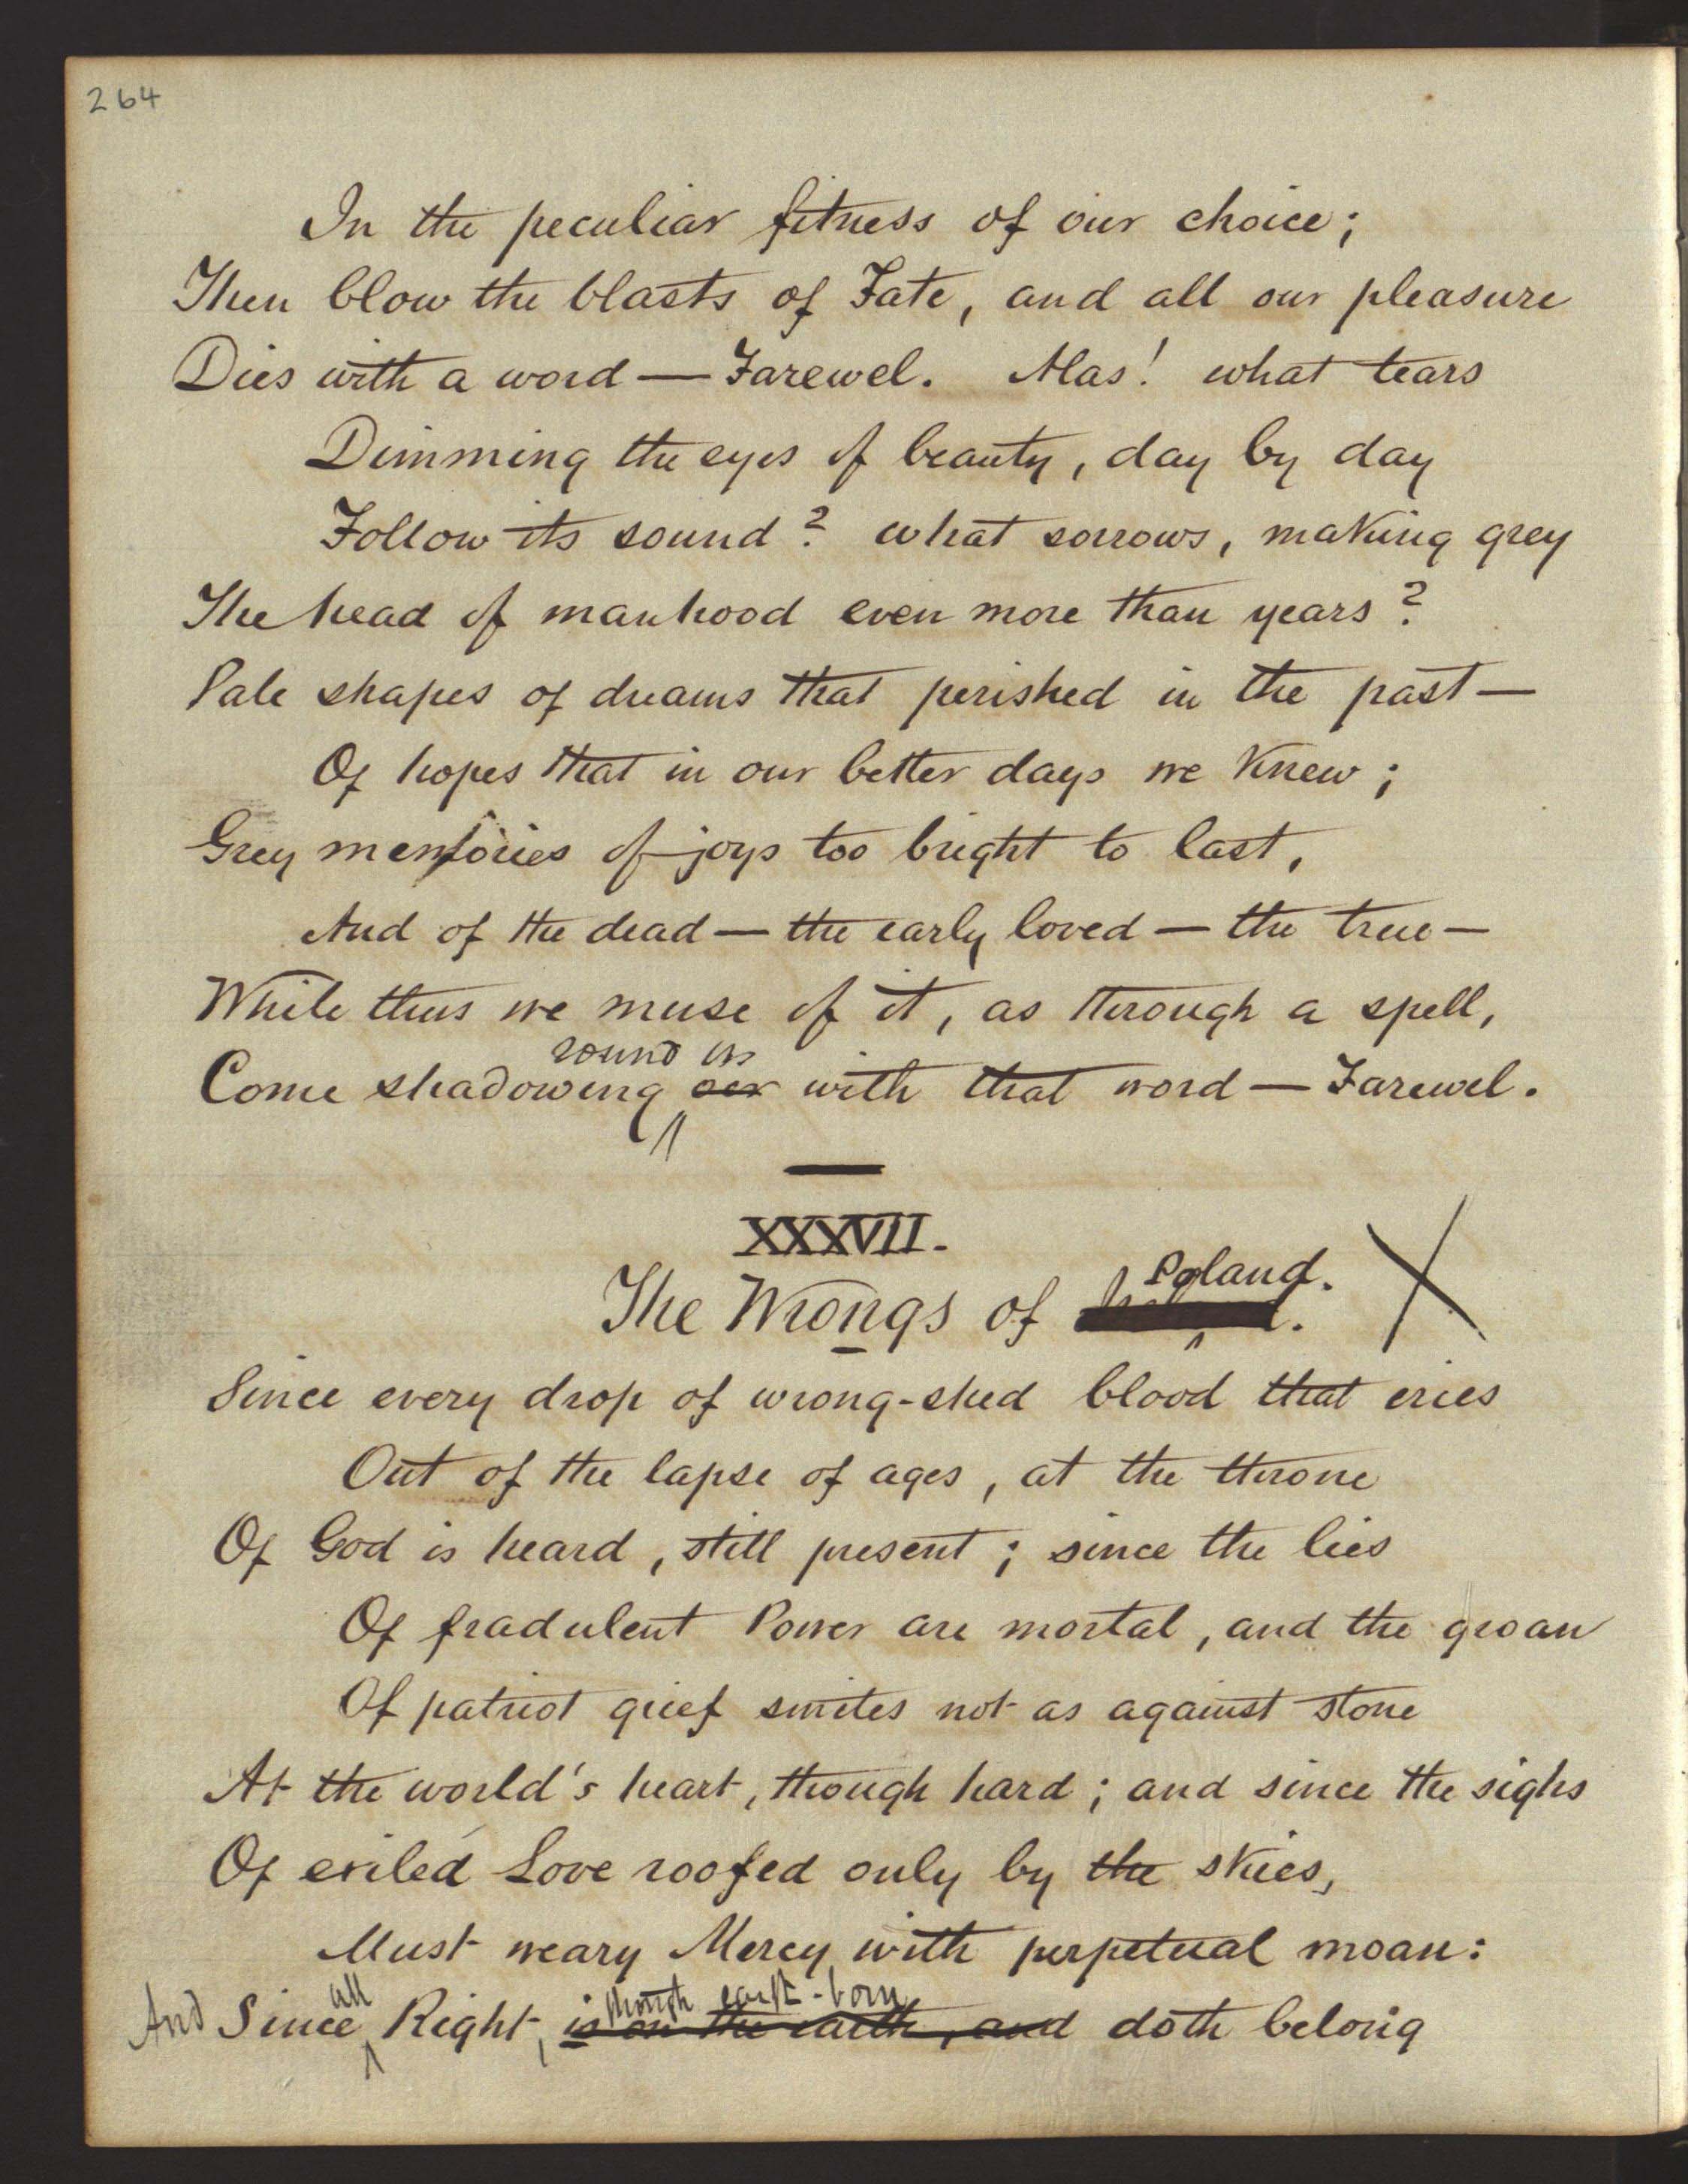 264
In the peculiar fitness of our choice;
Then blow the blasts of Fate, and all our pleasure
Dies with a word — Farewel. Alas! what tears
Dimming the eyes of beauty, day by day
Follow its sound? what sorrows, making grey
The head of manhood even more than years?
Pale shapes of dreams that perished in the past —
Of hopes that in our better days we knew;
Grey memories of joys too bright to last,
And of the dead — the early loved — the true —
While thus we muse of it, as through a spell,
round us
Come shadowing our with that word — Farewel.
XXXVII.
Poland.
The Wrongs of
Since every drop of wrong-shed blood that cries
Out of the lapse of ages, at the throne
Of God is heard, still present; since the lies
Of fradulent Power are mortal, and the groan
Of patriot grief smites not as against stone
At the world's heart, though hard; and since the sighs
Of exiled Love roofed only by the skies,
Must weary Mercy with perpetual moan:
all though earth-born
And Since Right, is on the earth, and doth belong